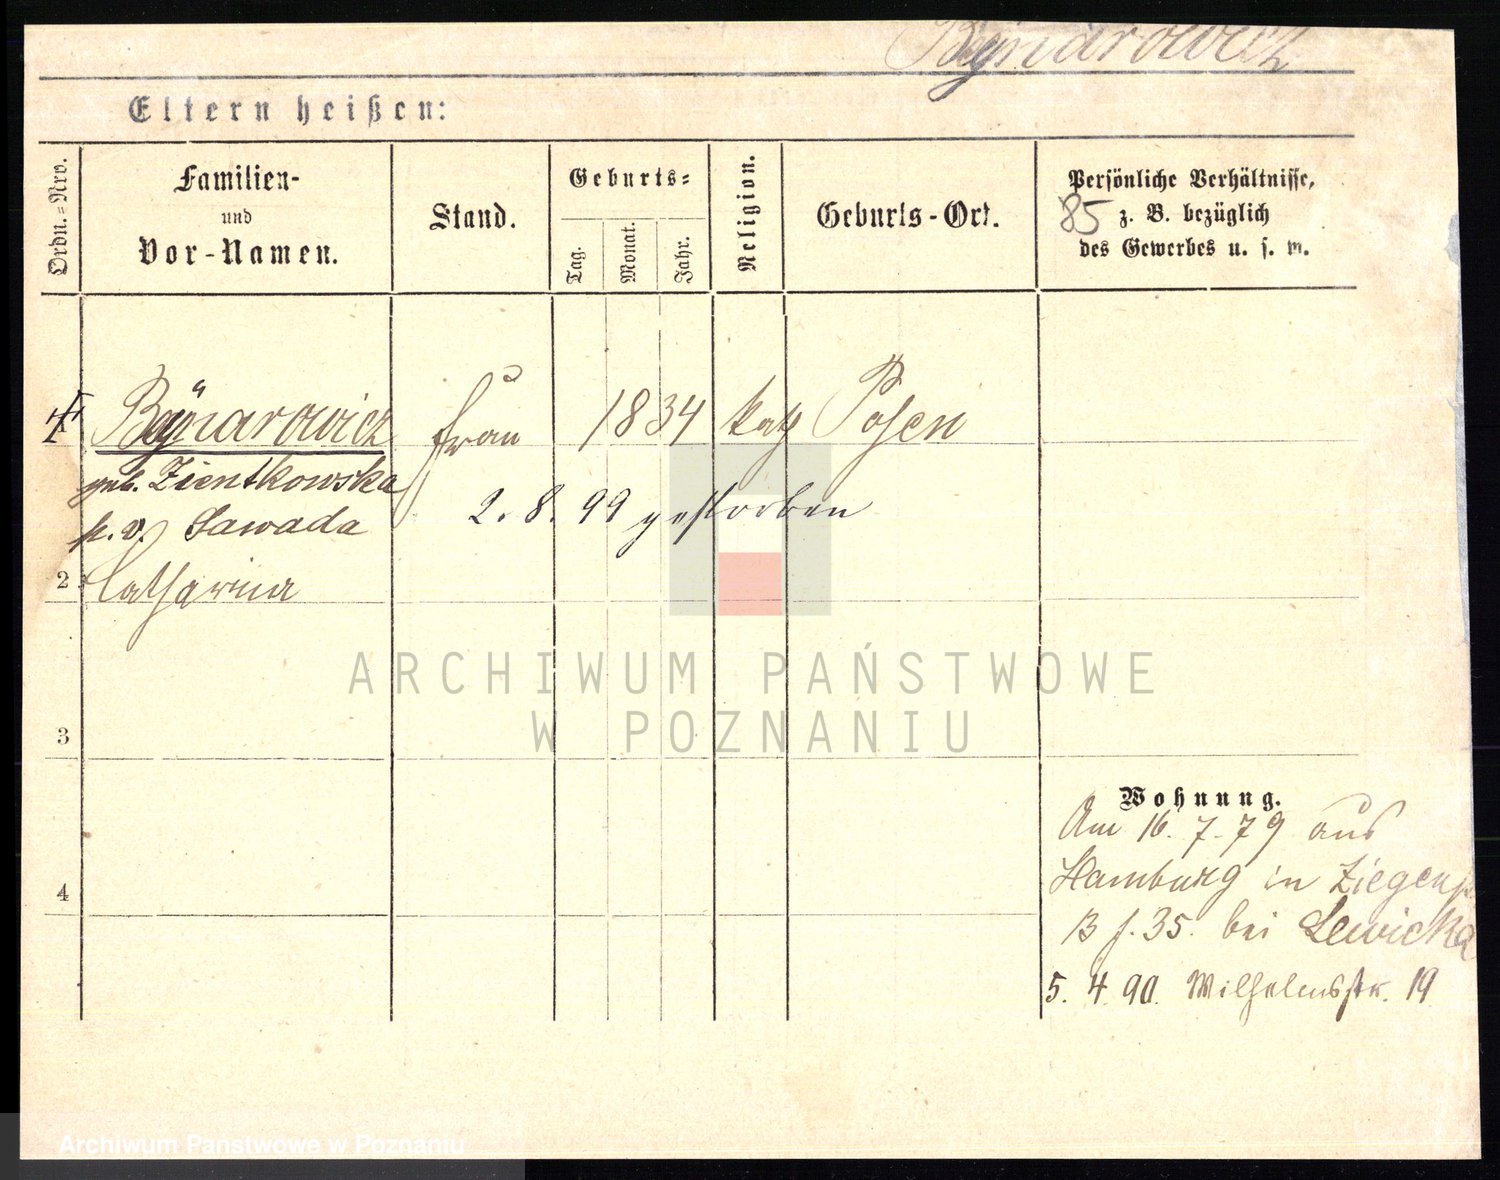 Bajnarowicz
Eltern heißen:
Ordn.=Nro.
Familien-
und
Vor-Namen.
Stand.
Geburts=
Tag.
Monat.
Jahr.
Religion.
Geburts-Ort.
Persönliche Verhältnisse,
85 z. B. bezüglich
des Gewerbes u. s. w.
Bajnarowicz Frau 1834 kath Posen
geb. Zientkowska
2. 8. 99 gestorben
p. v. Sawada
2 Catharina
ARCHIWUM PAŃSTWOWE
W POZNANIU
3
Wohnung.
Am 16. 7. 79 aus
4
Hamburg in Ziegen
35. bei Lewicka
5. 4. 90. Wilhelmsstr. 19
Archiwum Państwowe w Poznaniu